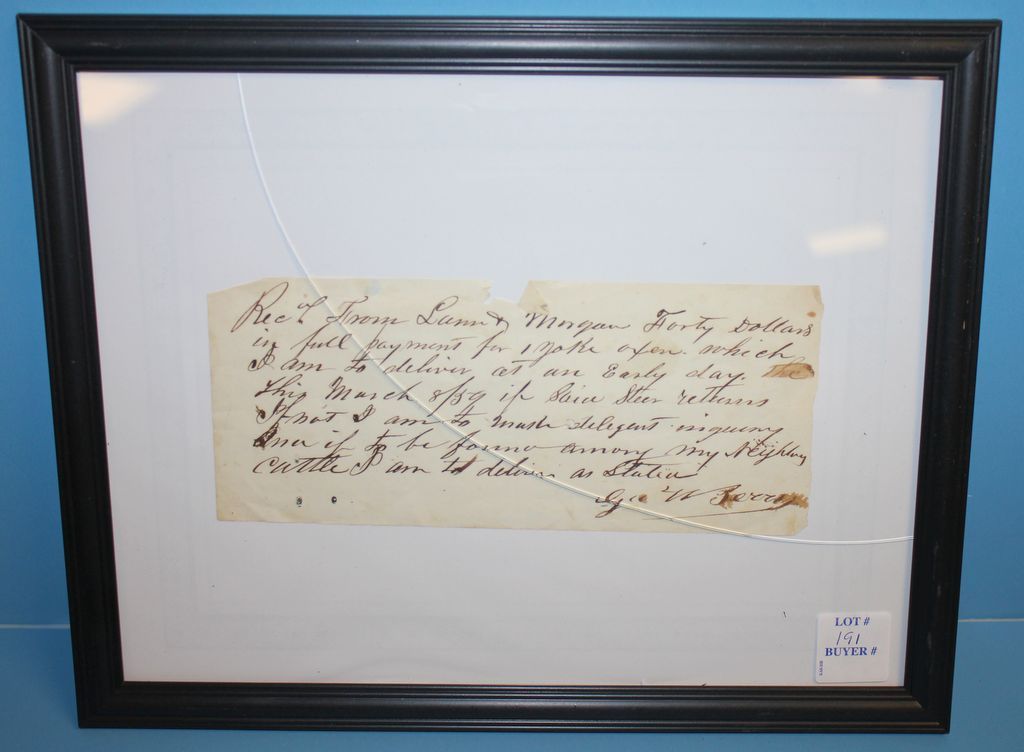 Rec'd From Lamn & Morgan Forty Dollars
in full payment for 1 yoke oxen which
I am to deliver at an Early day. the
this March 8/59 if Said Steer returns
If not I am to make delegent inquiry
and if to be found among my Neighbors
cattle I am to deliver as Stated
Geo W Berry
LOT #
191
BUYER #